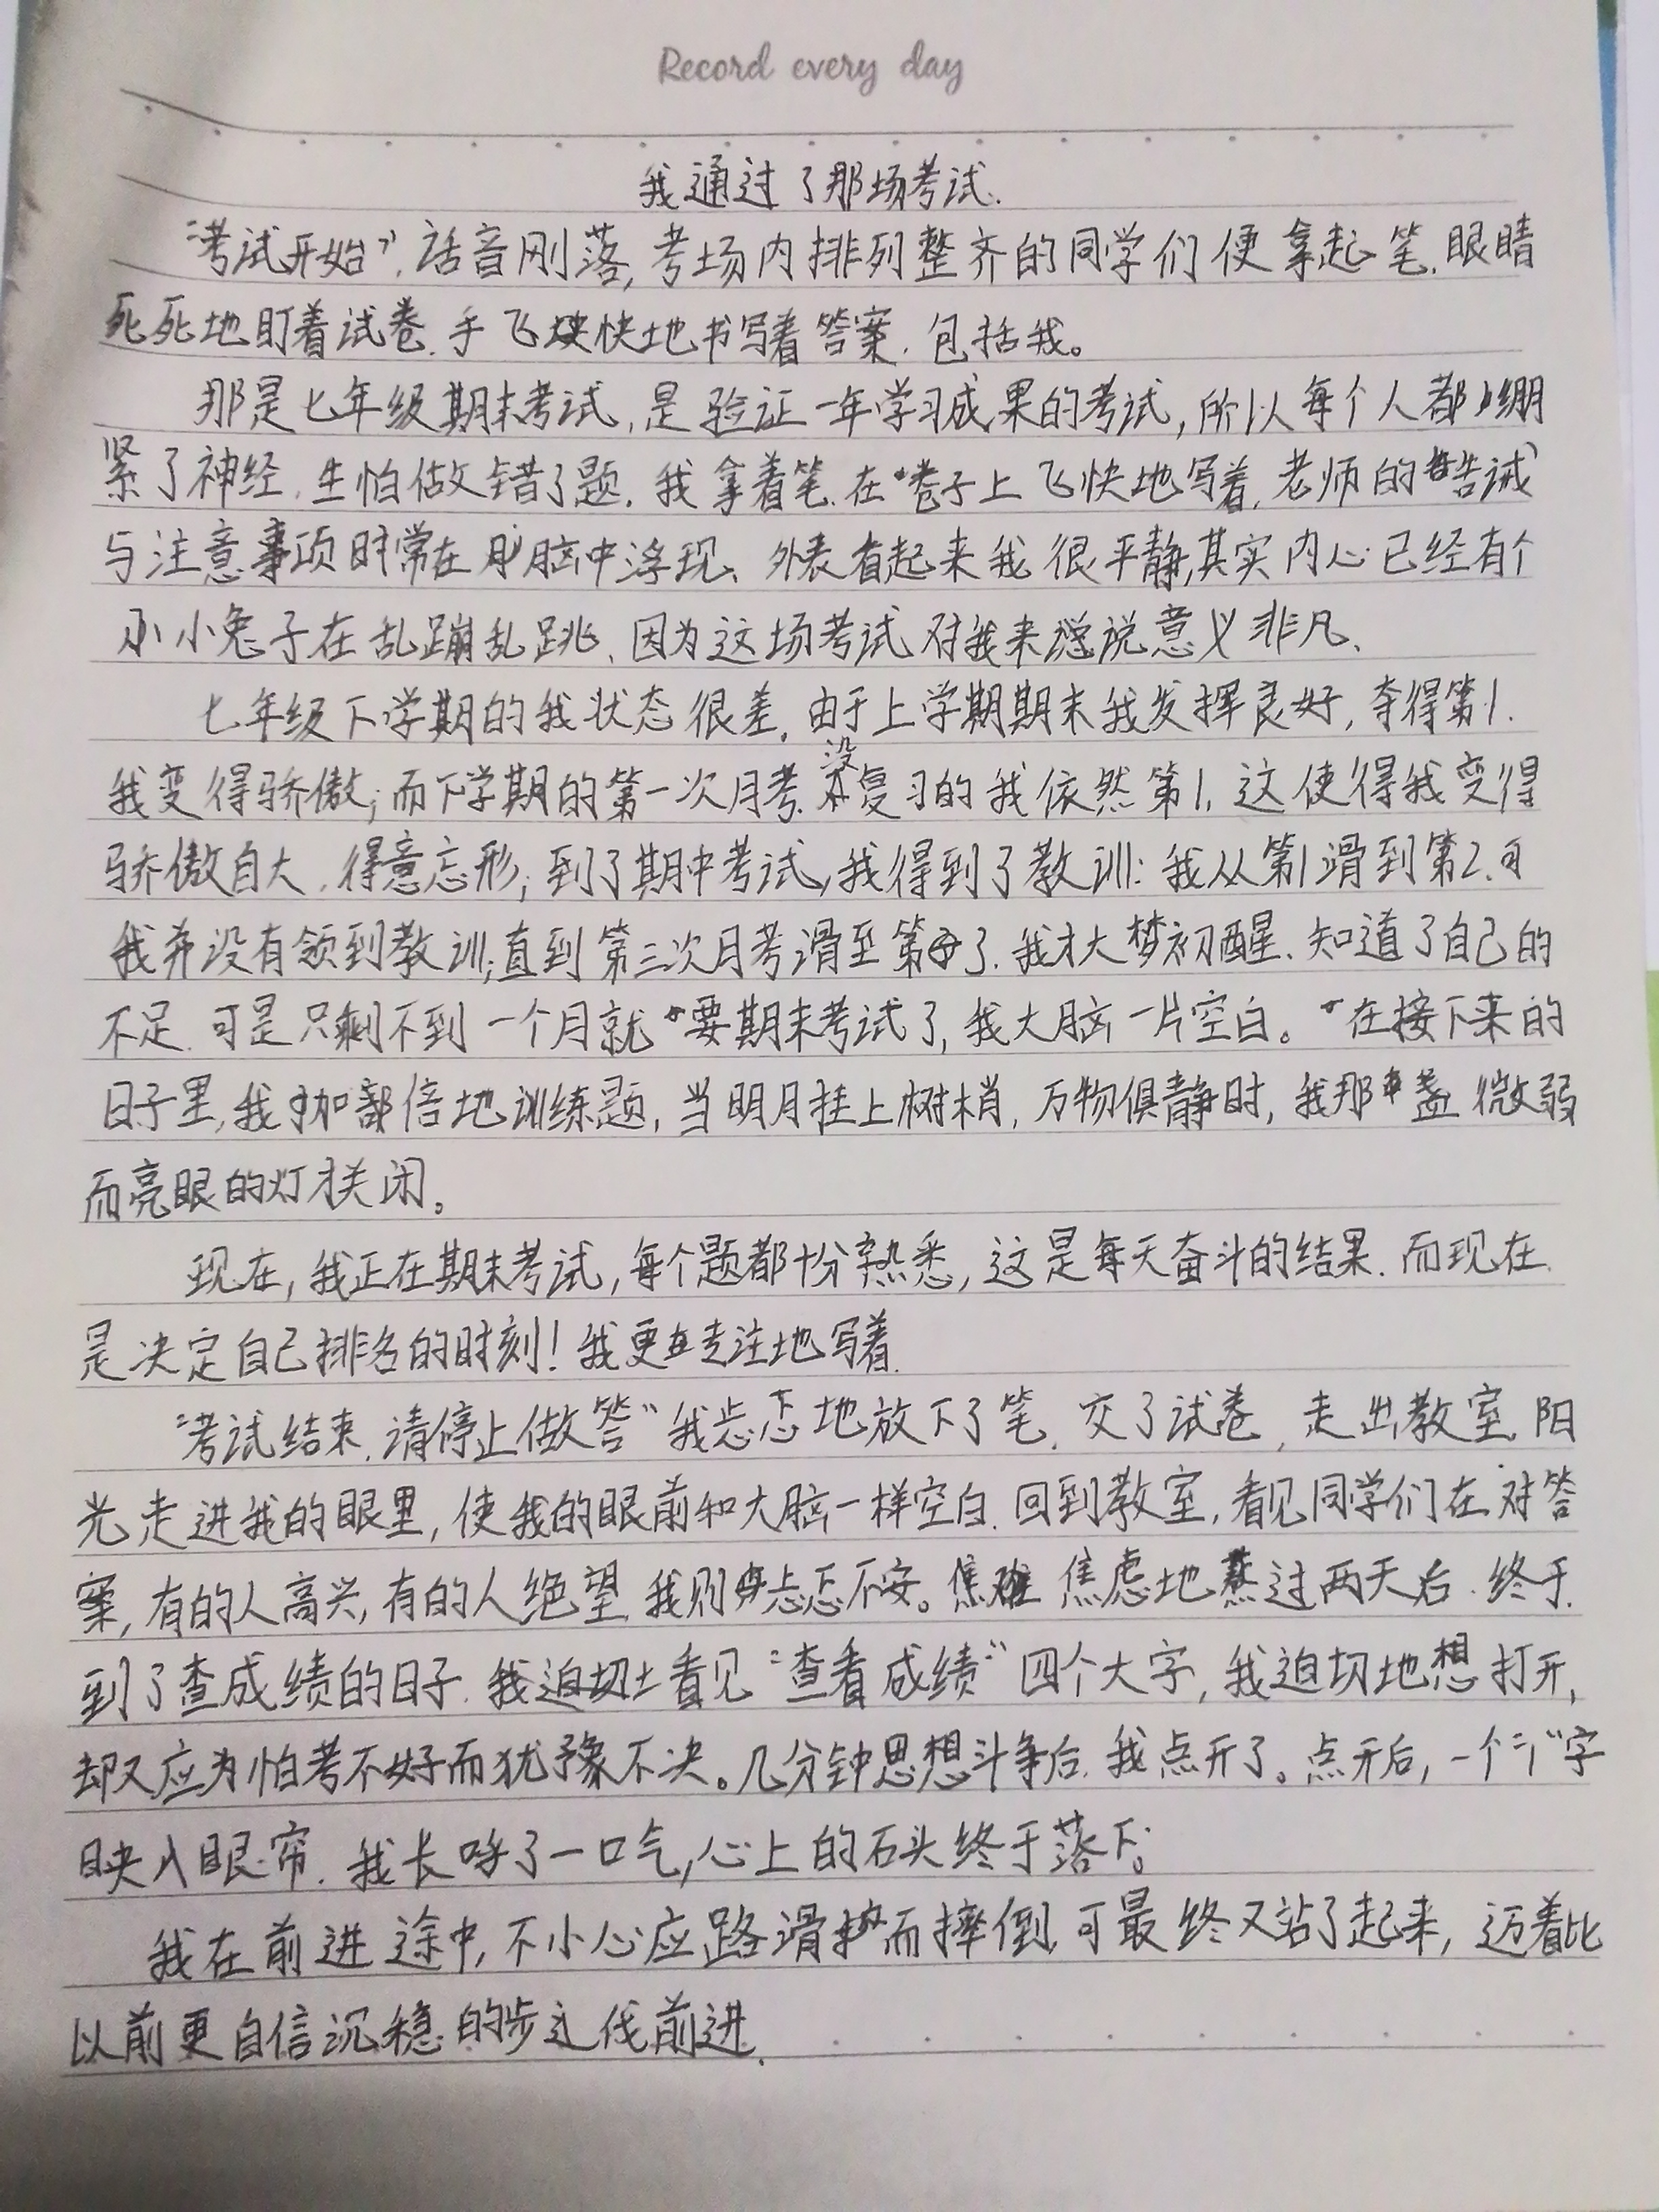 Record every day
我通过了那场考试.
“考试开始”，话音刚落，考场内排列整齐的同学们便拿起笔.眼睛
死死地盯着试卷.手飞快地书写着答案.包括我。
那是七年级期末考试,是验证一年学习成果的考试,所以每个人都绷
紧了神经.生怕做错了题.我拿着笔.在卷子上飞快地写着,老师的告诫
与注意事项时常在脑中浮现、外表看起来我很平静,其实内心已经有个
小小兔子在乱蹦乱跳、因为这场考试对我来说意义非凡、
七年级下学期的我状态很差.由于上学期期末我发挥良好,夺得第1.
我变得骄傲;而下学期的第一次月考.没复习的我依然第1.这使得我变得
骄傲自大.得意忘形;到了期中考试,我得到了教训:我从第1滑到第2.可
我并没有领到教训;直到第三次月考滑至第了.我才大梦初醒.知道了自己的
不足.可是只剩不到一个月就要期末考试了,我大脑一片空白。在接下来的
日子里,我加倍地训练题,当明月挂上树梢,万物俱静时,我那盏微弱
而亮眼的灯才关闭。
现在,我正在期末考试,每个题都十分熟悉,这是每天奋斗的结果.而现在
是决定自己排名的时刻!我更专注地写着.
“考试结束.请停止做答”我忐忑地放下了笔.交了试卷,走出教室.阳
光走进我的眼里,使我的眼前和大脑一样空白.回到教室,看见同学们在对答
案,有的人高兴,有的人绝望.我则忐忑不安。焦虑地熬过两天后.终于
到了查成绩的日子.我看见“查看成绩”四个大字,我迫切地想打开,
却又应为怕考不好而犹豫不决。几分钟思想斗争后.我点开了。点开后,一个“1”字
映入眼帘.我长呼了一口气,心上的石头终于落下。
我在前进途中,不小心应路滑而摔倒,可最终又站了起来,迈着比
以前更自信沉稳的步伐前进.